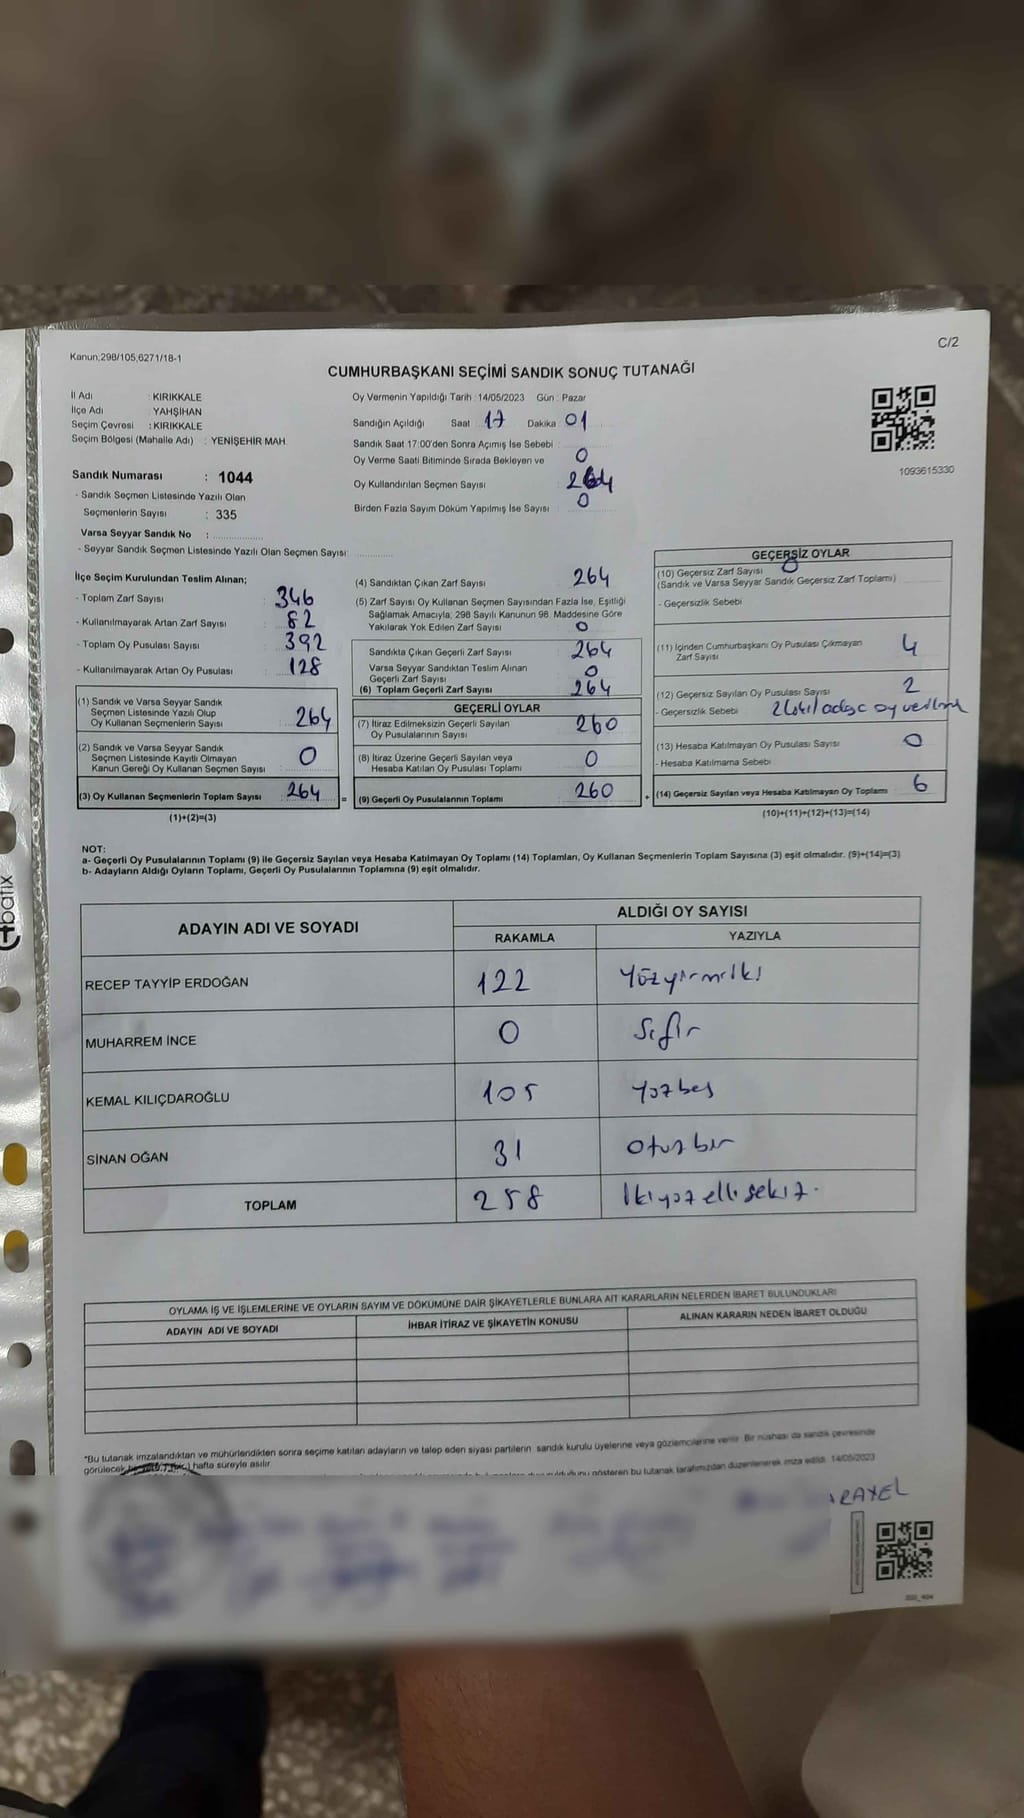 C/2
Kanun;298/105,6271/18-1
CUMHURBAŞKANI SEÇİMİ SANDIK SONUÇ TUTANAĞI
İl Adı : KIRIKKALE
İlçe Adı : YAHŞİHAN
Seçim Çevresi : KIRIKKALE
Seçim Bölgesi (Mahalle Adı) : YENİŞEHİR MAH.
Sandık Numarası : 1044
- Sandık Seçmen Listesinde Yazılı Olan
Seçmenlerin Sayısı : 335
Varsa Seyyar Sandık No :
- Seyyar Sandık Seçmen Listesinde Yazılı Olan Seçmen Sayısı:
Oy Vermenin Yapıldığı Tarih : 14/05/2023 Gün : Pazar
Sandığın Açıldığı Saat 17 Dakika 01
Sandık Saat 17:00'den Sonra Açımış İse Sebebi
Oy Verme Saati Bitiminde Sırada Bekleyen ve 0
Oy Kullandırılan Seçmen Sayısı 264
Birden Fazla Sayım Döküm Yapılmış İse Sayısı 0
1093615330
İlçe Seçim Kurulundan Teslim Alınan;
- Toplam Zarf Sayısı : 346
- Kullanılmayarak Artan Zarf Sayısı : 82
- Toplam Oy Pusulası Sayısı : 392
- Kullanılmayarak Artan Oy Pusulası : 128
(1) Sandık ve Varsa Seyyar Sandık
Seçmen Listesinde Yazılı Olup
Oy Kullanan Seçmenlerin Sayısı : 264
(2) Sandık ve Varsa Seyyar Sandık
Seçmen Listesinde Kayıtlı Olmayan
Kanun Gereği Oy Kullanan Seçmen Sayısı : 0
(3) Oy Kullanan Seçmenlerin Toplam Sayısı : 264
(1)+(2)=(3)
(4) Sandıktan Çıkan Zarf Sayısı 264
(5) Zarf Sayısı Oy Kullanan Seçmen Sayısından Fazla İse, Eşitliği
Sağlamak Amacıyla, 298 Sayılı Kanunun 98. Maddesine Göre
Yakılarak Yok Edilen Zarf Sayısı : 0
Sandıkta Çıkan Geçerli Zarf Sayısı : 264
Varsa Seyyar Sandıktan Teslim Alınan
Geçerli Zarf Sayısı : 0
(6) Toplam Geçerli Zarf Sayısı : 264
GEÇERLİ OYLAR
(7) İtiraz Edilmeksizin Geçerli Sayılan
Oy Pusulalarının Sayısı : 260
(8) İtiraz Üzerine Geçerli Sayılan veya
Hesaba Katılan Oy Pusulası Toplamı : 0
= (9) Geçerli Oy Pusulalarının Toplamı : 260
GEÇERSİZ OYLAR
(10) Geçersiz Zarf Sayısı 0
(Sandık ve Varsa Seyyar Sandık Geçersiz Zarf Toplamı)
- Geçersizlik Sebebi
(11) İçinden Cumhurbaşkanı Oy Pusulası Çıkmayan 4
Zarf Sayısı
(12) Geçersiz Sayılan Oy Pusulası Sayısı 2
- Geçersizlik Sebebi
(13) Hesaba Katılmayan Oy Pusulası Sayısı 0
- Hesaba Katılmama Sebebi
+ (14) Geçersiz Sayılan veya Hesaba Katılmayan Oy Toplamı 6
(10)+(11)+(12)+(13)=(14)
NOT:
a- Geçerli Oy Pusulalarının Toplamı (9) ile Geçersiz Sayılan veya Hesaba Katılmayan Oy Toplamı (14) Toplamları, Oy Kullanan Seçmenlerin Toplam Sayısına (3) eşit olmalıdır. (9)+(14)=(3)
b- Adayların Aldığı Oyların Toplamı, Geçerli Oy Pusulalarının Toplamına (9) eşit olmalıdır.
ADAYIN ADI VE SOYADI ALDIĞI OY SAYISI
RAKAMLA YAZIYLA
RECEP TAYYİP ERDOĞAN 122 Yüzyirmiiki
MUHARREM İNCE 0 Sıfır
KEMAL KILIÇDAROĞLU 105 Yüzbeş
SİNAN OĞAN 31 otuzbir
TOPLAM 258 İkiyüzellisekiz.
OYLAMA İŞ VE İŞLEMLERİNE VE OYLARIN SAYIM VE DÖKÜMÜNE DAİR ŞİKAYETLERLE BUNLARA AİT KARARLARIN NELERDEN İBARET BULUNDUKLARI
ADAYIN ADI VE SOYADI İHBAR İTİRAZ VE ŞİKAYETİN KONUSU ALINAN KARARIN NEDEN İBARET OLDUĞU
*Bu tutanak imzalandıktan ve mühürlendikten sonra seçime katılan adayların ve talep eden siyasi partilerin sandık kurulu üyelerine veya gözlemcilerine verilir. Bir nüshası da sandık çevresinde
görülecek hafta süreyle asılır.
gösteren bu tutanak tarafımızdan düzenlenerek imza edildi. 14/05/2023
batix